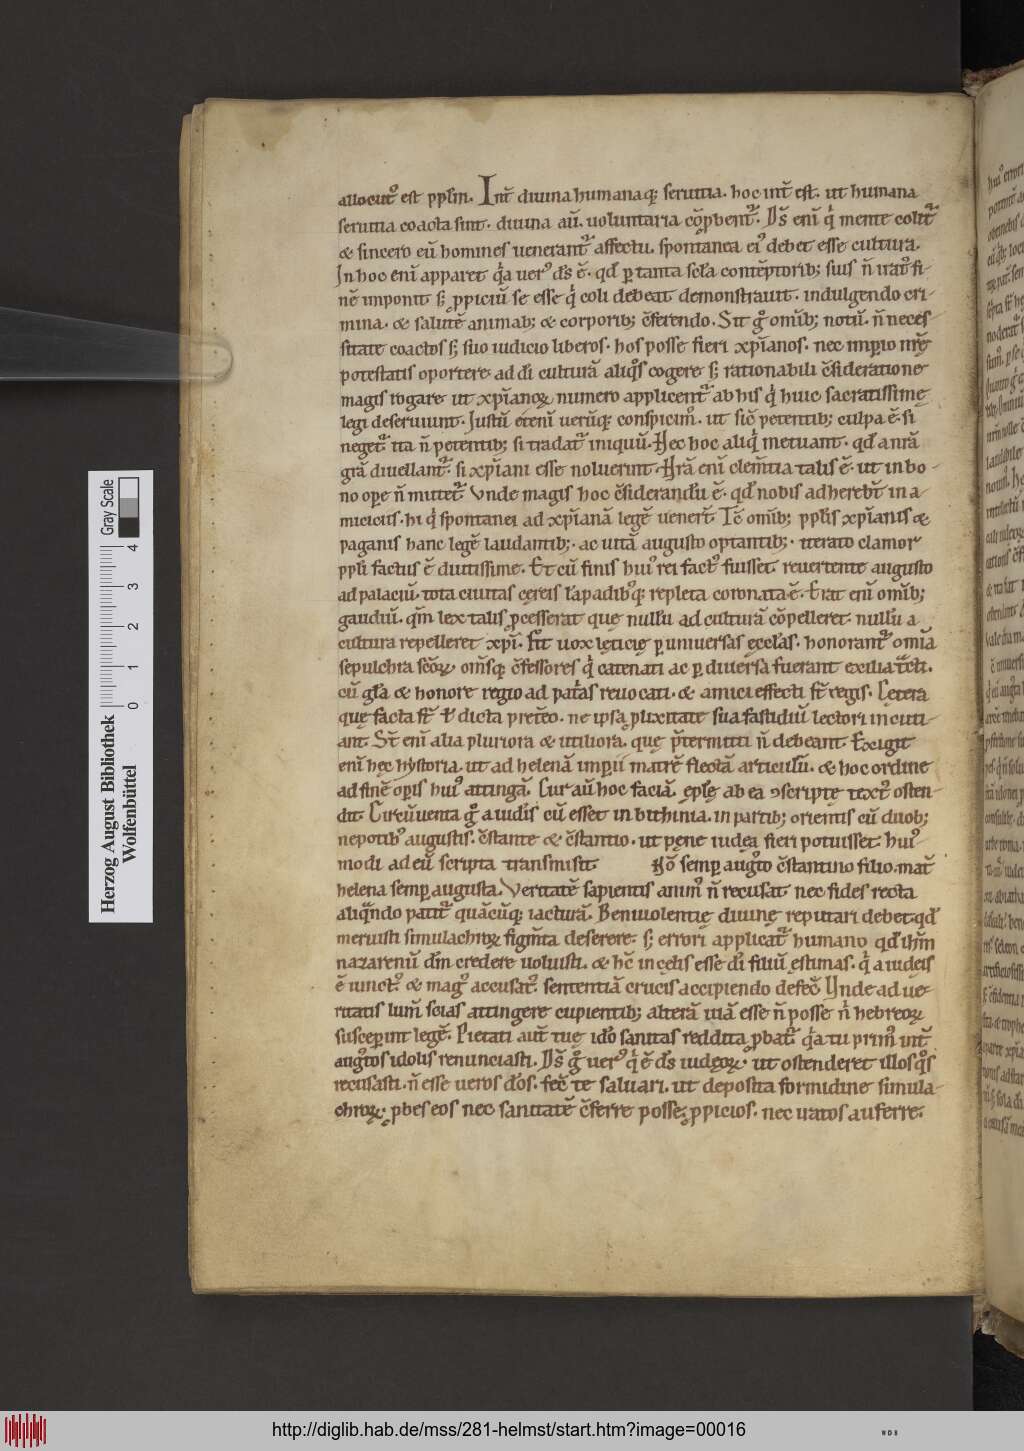 allocut᷒ est pplm̄. Int̄ diuina humanaq; seruitia. hoc int̄ est. ut humana
seruitia coacta sint. diuina aū. uoluntaria cōp̱bent᷑. D̄s enī q̇ mente colit᷑
& sincero eū homines uenerant᷑ affectu. spontanea ei᷒ debet esse cultura.
In hoc enī apparet q̇a uer᷒ d̄s ē. qđ ꝑ tanta sc̄la contēptorib; suis n̄ irat᷒ fi-
nē imponit s; ꝓpiciū se esse q̇ coli debeat demonstrauit. indulgendo cri-
mina. & salutē animab; & corporib; c̄ferendo. Sit g̊ om̄ib; notū. n̄ neces-
sitate coactos s; suo iudicio liberos. hos posse fieri xp̄ianos. nec imperio nr̄ę
potestatis oportere ad d̄i culturā aliq̊s cogere s; rationabili c̄sideratione
magis rogare ut xp̄ianoꝝ numero applicent᷑ ab his q̇ huic sacratissimę
legi deseruiunt. Justū etenī ueruq; conspicim᷒. ut sic̄ petentib; culpa ē. si
neget᷑. ita n̄ petentib; si tradat᷑ iniquū. Nec hoc aliq̇ metuant. qđ a nr̄a
gr̄a diuellant᷑. si xp̄iani esse noluerint. Nr̄a enī clem̄tia talis ē. ut in bo-
no oꝑe n̄ mutet᷑. Vnde magis hoc c̄siderandū ē. qđ nobis adhereb̄t in a-
miciciis. hi q̇ spontanei ad xp̄ianā legē uener̄t. Tc̄ om̄ib; pplis xp̄ianis &
paganis hanc legē laudantib;. ac uitā augusto optantib;. iterato clamor
ppli factus ē diutissime. Et cū finis hui᷒ rei fact᷒ fuisset. reuertente augusto
ad palaciū. tota ciuitas cęreis lāpadib᷒q; repleta coronata ē. Erat enī om̄ib;
gaudiū. qm̄ lex talis p̱cesserat que nullū ad culturā cōpelleret. nullū a
cultura repelleret xp̄i. Fit uox lęticię ꝑ uniuersas ęcclas. honorant᷑ om̄ia
sepulchra sc̄oꝝ. om̄sq; c̄fessores q̇ catenati ac ꝑ diuersa fuerant exilia
cū gl̄a & honore regio ad patrias reuocati. & amici effecti s̄t regis. Cetera
quę facta s̄t ł dicta pretēo. ne ipsa ꝓlixitate sua fastidiū lectori incuti-
ant. S̄t enī alia pluriora & utiliora. quę p̄termitti n̄ debeant. Exigit
enī hęc hystoria. ut ad helenā imperii matrē flectā articulū. & hoc ordine
ad finē oꝑis hui᷒ attingā. Cur aū hoc faciā. ęplę ab ea ꝯscriptę text᷒ osten-
dit. Circūuenta g̊ a iudis cū esset in bithinia. in partib; orientis cū duob;
nepotib᷒ augustis. c̄stante & c̄stantio. ut pęne iudea fieri potuisset. hui᷒-
modi ad eū scripta transmisit Dō semꝑ aug᷒to c̄stantino filio. mat̄
helena semꝑ augusta. Veritatē sapientis anim᷒ n̄ recusat nec fides recta
aliq̄ndo patit᷑ quācūq; iacturā. Beniuolentię diuinę reputari debet. qđ
meruisti simulachroꝝ figm̄ta deserere. s; errori applicat᷑ humano qđ ih̄m
nazarenū dm̄ credere uoluisti. & hc̄ in cęlis esse d̄i filiū ęstimas. q̇ a iudeis
ē iunct᷒ & mag᷒ accusat᷒. sententiā crucis accipiendo defec̄. Vnde ad ue-
ritatis lum̄ scias attingere cupientib; alterā uiā esse n̄ posse ṅ hebreoꝝ
susceꝑint legē. Pietati aut̄ tuę ido sanitas reddita p̱bat᷑. q̇a tu prim᷒ int̄
aug᷒tos idolis renunciasti. D̄s g̊ uer᷒ q̇ ē d̄s iudęoꝝ. ut ostenderet illos q̊s
recusasti. n̄ esse ueros d̄os. fec̄ te saluari. ut deposita formidine simula-
chroꝝ. p̱bes eos nec sanitatē c̄ferre posse ꝓpicios. nec iratos auferre.
Herzog August Bibliothek
Wolfenbüttel
Gray Scale
0 1 2 3 4
http://diglib.hab.de/mss/281-helmst/start.htm?image=00016